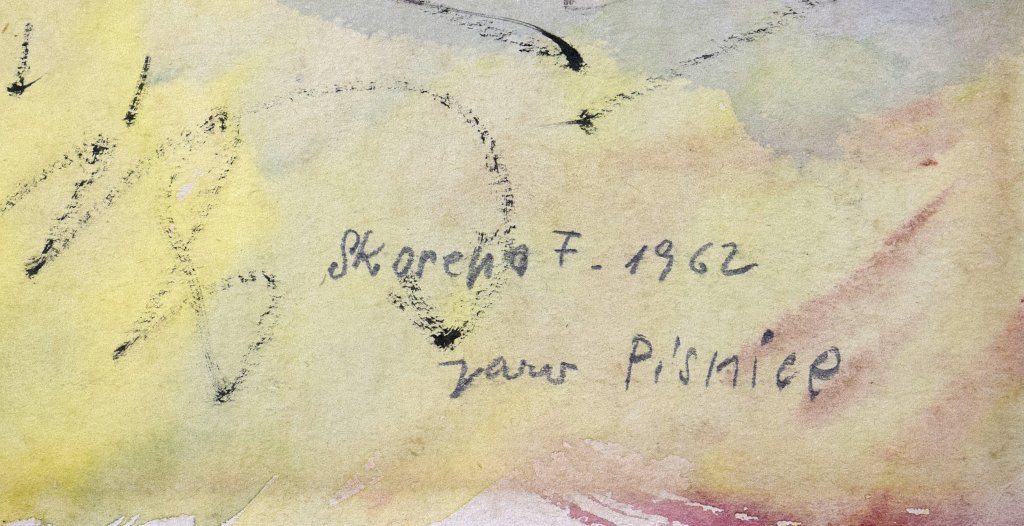 Skorepa F. - 1962
jaro Písnice